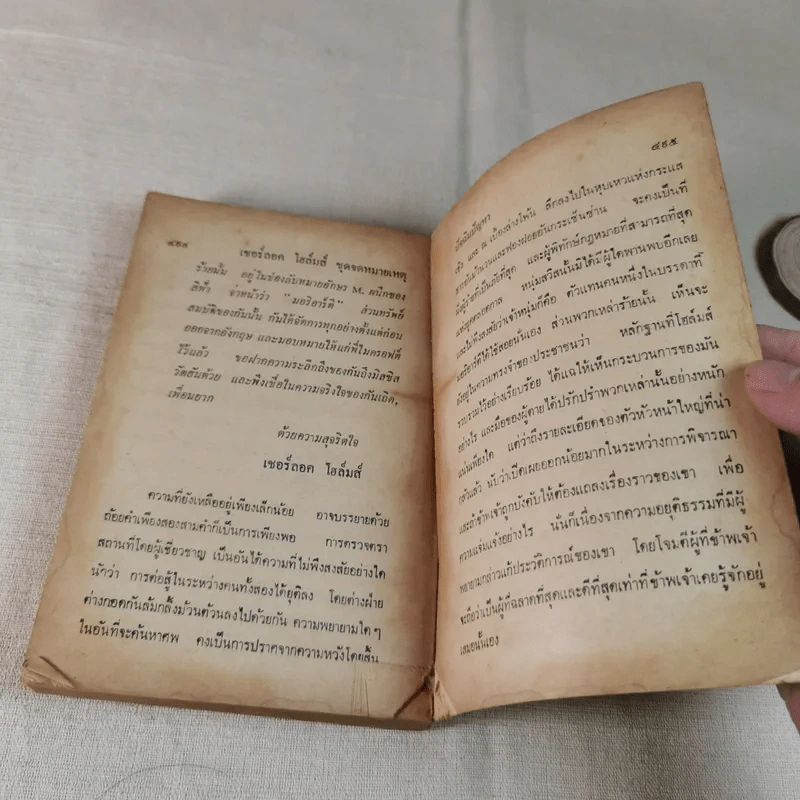 ๔๘๔
เชอร์ลอค โฮล์มส์ ชุดจดหมายเหตุ
ร้ายนั้น อยู่ในช่องลับหมายอักษร M. ผนึกซอง
สีฟ้า จ่าหน้าว่า “มอริอาร์ตี” ส่วนทรัพย์
สมบัติของกันนั้น กันได้จัดการทุกอย่างตั้งแต่ก่อน
ออกจากอังกฤษ และมอบหมายให้แก่พี่ไมครอฟต์
ไว้แล้ว ขอฝากความระลึกถึงของกันถึงมิสซิส
วัตสันด้วย และพึงเชื่อในความจริงใจของกันเถิด,
เพื่อนยาก
ด้วยความสุจริตใจ
เชอร์ลอค โฮล์มส์
ความที่ยังเหลืออยู่เพียงเล็กน้อย อาจบรรยายด้วย
ถ้อยคำเพียงสองสามคำก็เป็นการเพียงพอ การตรวจตรา
สถานที่โดยผู้เชี่ยวชาญ เป็นอันได้ความที่ไม่พึงสงสัยอย่างใด
นักว่า การต่อสู้ในระหว่างคนทั้งสองได้ยุติลง โดยต่างฝ่าย
ต่างกอดกันล้มกลิ้งม้วนตัวลงไปด้วยกัน ความพยายามใด ๆ
ในอันที่จะค้นหาศพ คงเป็นการปราศจากความหวังโดยสิ้น
๔๘๕
ปัจฉิมปัญหา
เชิง และ ณ เบื้องล่างโพ้น ลึกลงไปในหุบเหวแห่งกระแส
ธารอันม้วนวนและฟองฝอยอันกระเซ็นซ่าน จะคงเป็นที่
ฝังผู้ร้ายที่เป็นภัยที่สุด และผู้พิทักษ์กฎหมายที่สามารถที่สุด
แห่งยุคตลอดกาล หนุ่มสวิสนั้นมิได้มีผู้ใดพานพบอีกเลย
และไม่พึงสงสัยว่าเจ้าหนุ่มก็คือ ตัวแทนคนหนึ่งในบรรดาที่
มอริอาร์ตีได้ใช้สอยนั่นเอง ส่วนพวกเหล่าร้ายนั้น เห็นจะ
ยังอยู่ในความทรงจำของประชาชนว่า หลักฐานที่โฮล์มส์
รวบรวมไว้อย่างเรียบร้อย ได้แฉให้เห็นกระบวนการของมัน
อย่างไร และมือของผู้ตายได้ปรักปรำพวกเหล่านั้นอย่างหนัก
แน่นเพียงใด แต่ว่าถึงรายละเอียดของตัวหัวหน้าใหญ่ที่น่า
กลัวแล้ว นับว่าเปิดเผยออกน้อยมากในระหว่างการพิจารณา
และถ้าข้าพเจ้าถูกบังคับให้ต้องแถลงเรื่องราวของเขา เพื่อ
ความแจ่มแจ้งอย่างไร นั่นก็เนื่องจากความอยุติธรรมที่มีผู้
พยายามกล่าวแก้ประวัติการณ์ของเขา โดยโจมตีผู้ที่ข้าพเจ้า
จะถือว่าเป็นผู้ที่ฉลาดที่สุดและดีที่สุดเท่าที่ข้าพเจ้าเคยรู้จักอยู่
เสมอนั้นเอง